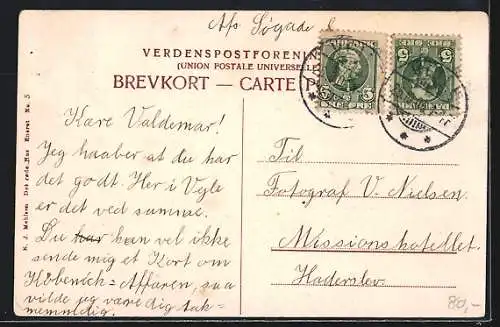 Afs Søgade
VERDENSPOSTFORENI
(UNION POSTALE UNIVERSELLE
BREVKORT — CARTE P
Kære Valdemar!
Jeg haaber at du har
det godt. Her i Vejle
er det ved samme.
Du har kan vel ikke
sende mig et Kort om
Köbenich-Affæren, saa
vilde jeg være dig tak-
nemmeldig.
Til
Fotograf V. Nielsen.
Missionshotellet.
Haderslev.
80,-
N. J. Mehlsen Det røde Hus Eneret No. 5